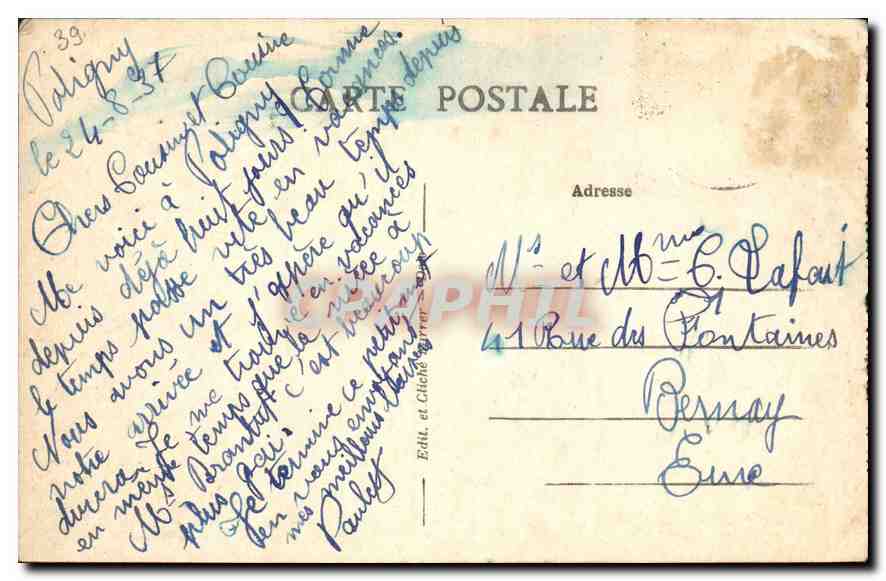 39
Poligny
le 24-8-37
Chers Cousin et Cousine
Me voici à Poligny
depuis déjà huit jours! Comme
le temps passe vite en vacances.
Nous avons un très beau temps depuis
notre arrivée et j'espère qu'il
durera. Je me trouve en vacances
en même temps que la nièce à
Mr Brantut c'est beaucoup
plus gai.
Je termine ce petit
en vous envoyant
mes meilleurs
Paulette
CARTE POSTALE
Edit. et Cliché Karrer
Adresse
Mr et Mme C. Lafait
41 Rue des Fontaines
Bernay
Eure
CPAPHIL